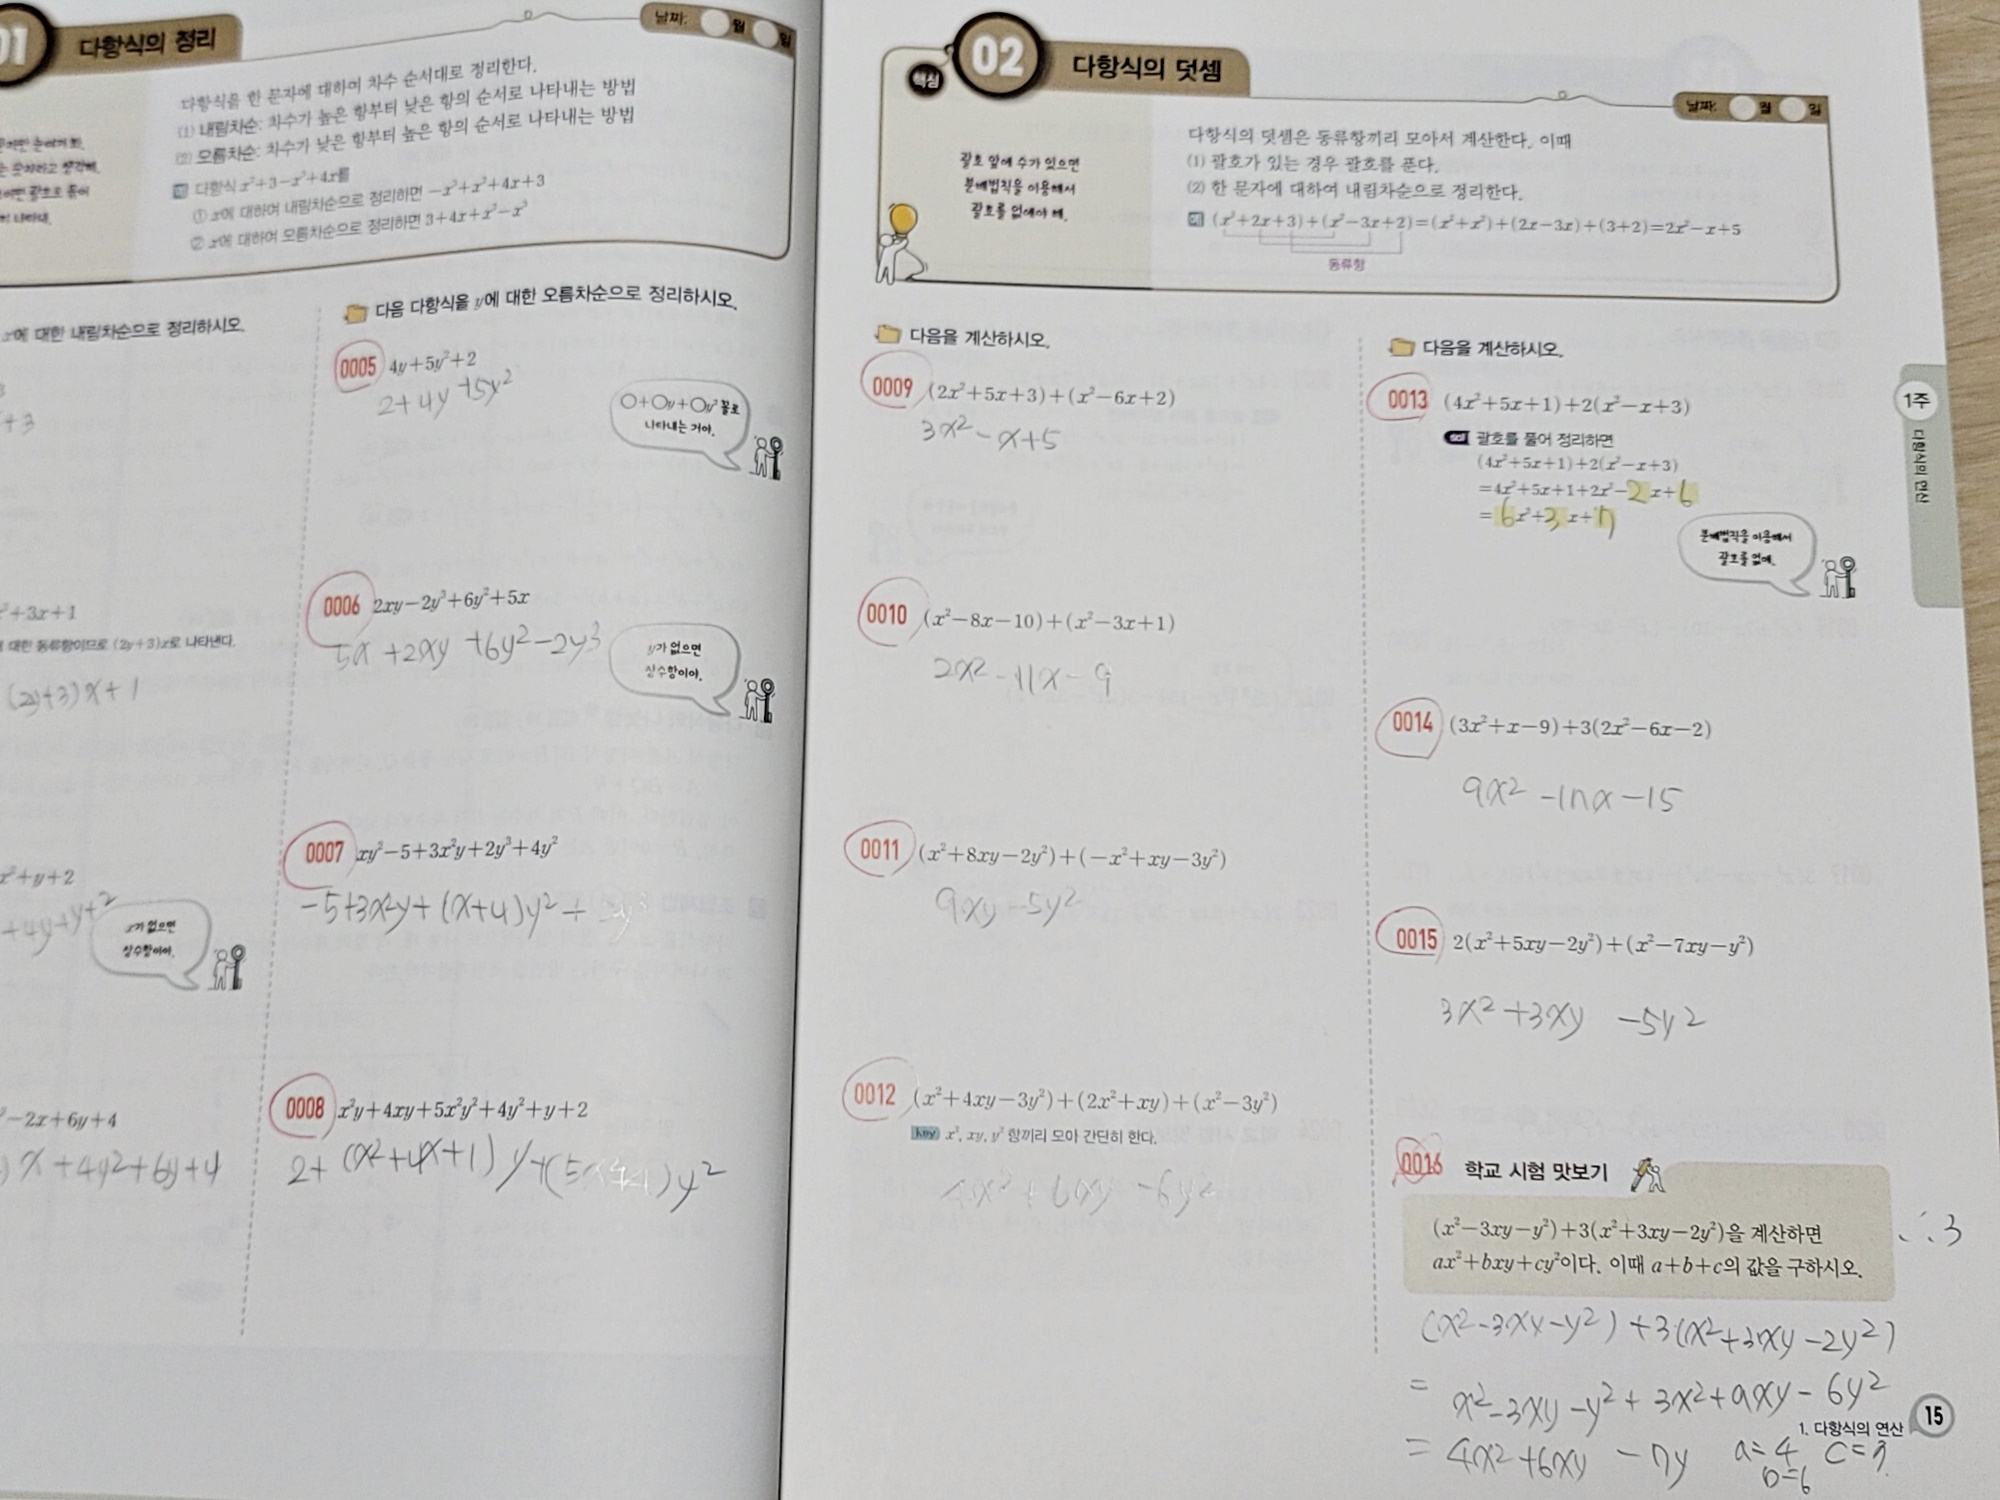 01 다항식의 정리
날짜: 월 일
다항식을 한 문자에 대하여 차수 순서대로 정리한다.
(1) 내림차순: 차수가 높은 항부터 낮은 항의 순서로 나타내는 방법
(2) 오름차순: 차수가 낮은 항부터 높은 항의 순서로 나타내는 방법
예 다항식 x²+3-x³+4x를
① x에 대하여 내림차순으로 정리하면 -x³+x²+4x+3
② x에 대하여 오름차순으로 정리하면 3+4x+x²-x³
x에 대한 내림차순으로 정리하시오.
+3
²+3x+1
대한 동류항이므로 (2y+3)x로 나타낸다.
(2y+3)x+1
x²+y+2
+4y+y+2
x가 없으면
상수항이야.
-2x+6y+4
)x+4y²+6y+4
다음 다항식을 y에 대한 오름차순으로 정리하시오.
0005 4y+5y²+2
2+4y+5y²
○+○y+○y² 꼴로
나타내는 거야.
0006 2xy-2y³+6y²+5x
5x+2xy+6y²-2y³
y가 없으면
상수항이야.
0007 xy²-5+3x²y+2y³+4y²
-5+3x²y+(x+4)y²+
0008 x²y+4xy+5x²y²+4y²+y+2
2+(x²+4x+1)y+(5x²+4)y²
핵심 02 다항식의 덧셈
날짜: 월 일
괄호 앞에 수가 있으면
분배법칙을 이용해서
괄호를 없애야 해.
다항식의 덧셈은 동류항끼리 모아서 계산한다. 이때
(1) 괄호가 있는 경우 괄호를 푼다.
(2) 한 문자에 대하여 내림차순으로 정리한다.
예 (x²+2x+3)+(x²-3x+2)=(x²+x²)+(2x-3x)+(3+2)=2x²-x+5
동류항
다음을 계산하시오.
0009 (2x²+5x+3)+(x²-6x+2)
3x²-x+5
0010 (x²-8x-10)+(x²-3x+1)
2x²-11x-9
0011 (x²+8xy-2y²)+(-x²+xy-3y²)
9xy-5y²
0012 (x²+4xy-3y²)+(2x²+xy)+(x²-3y²)
key x², xy, y² 항끼리 모아 간단히 한다.
-6y²
다음을 계산하시오.
0013 (4x²+5x+1)+2(x²-x+3)
sol 괄호를 풀어 정리하면
(4x²+5x+1)+2(x²-x+3)
=4x²+5x+1+2x²-2x+6
=6x²+3x+7
분배법칙을 이용해서
괄호를 없애.
0014 (3x²+x-9)+3(2x²-6x-2)
9x²-17x-15
0015 2(x²+5xy-2y²)+(x²-7xy-y²)
3x²+3xy -5y²
0016 학교 시험 맛보기
(x²-3xy-y²)+3(x²+3xy-2y²)을 계산하면
ax²+bxy+cy²이다. 이때 a+b+c의 값을 구하시오.
∴3
(x²-3xy-y²)+3(x²+3xy-2y²)
= x²-3xy-y²+3x²+9xy-6y²
= 4x²+6xy -7y a=4 c=7
b=6
1주
다항식의 연산
1. 다항식의 연산 15